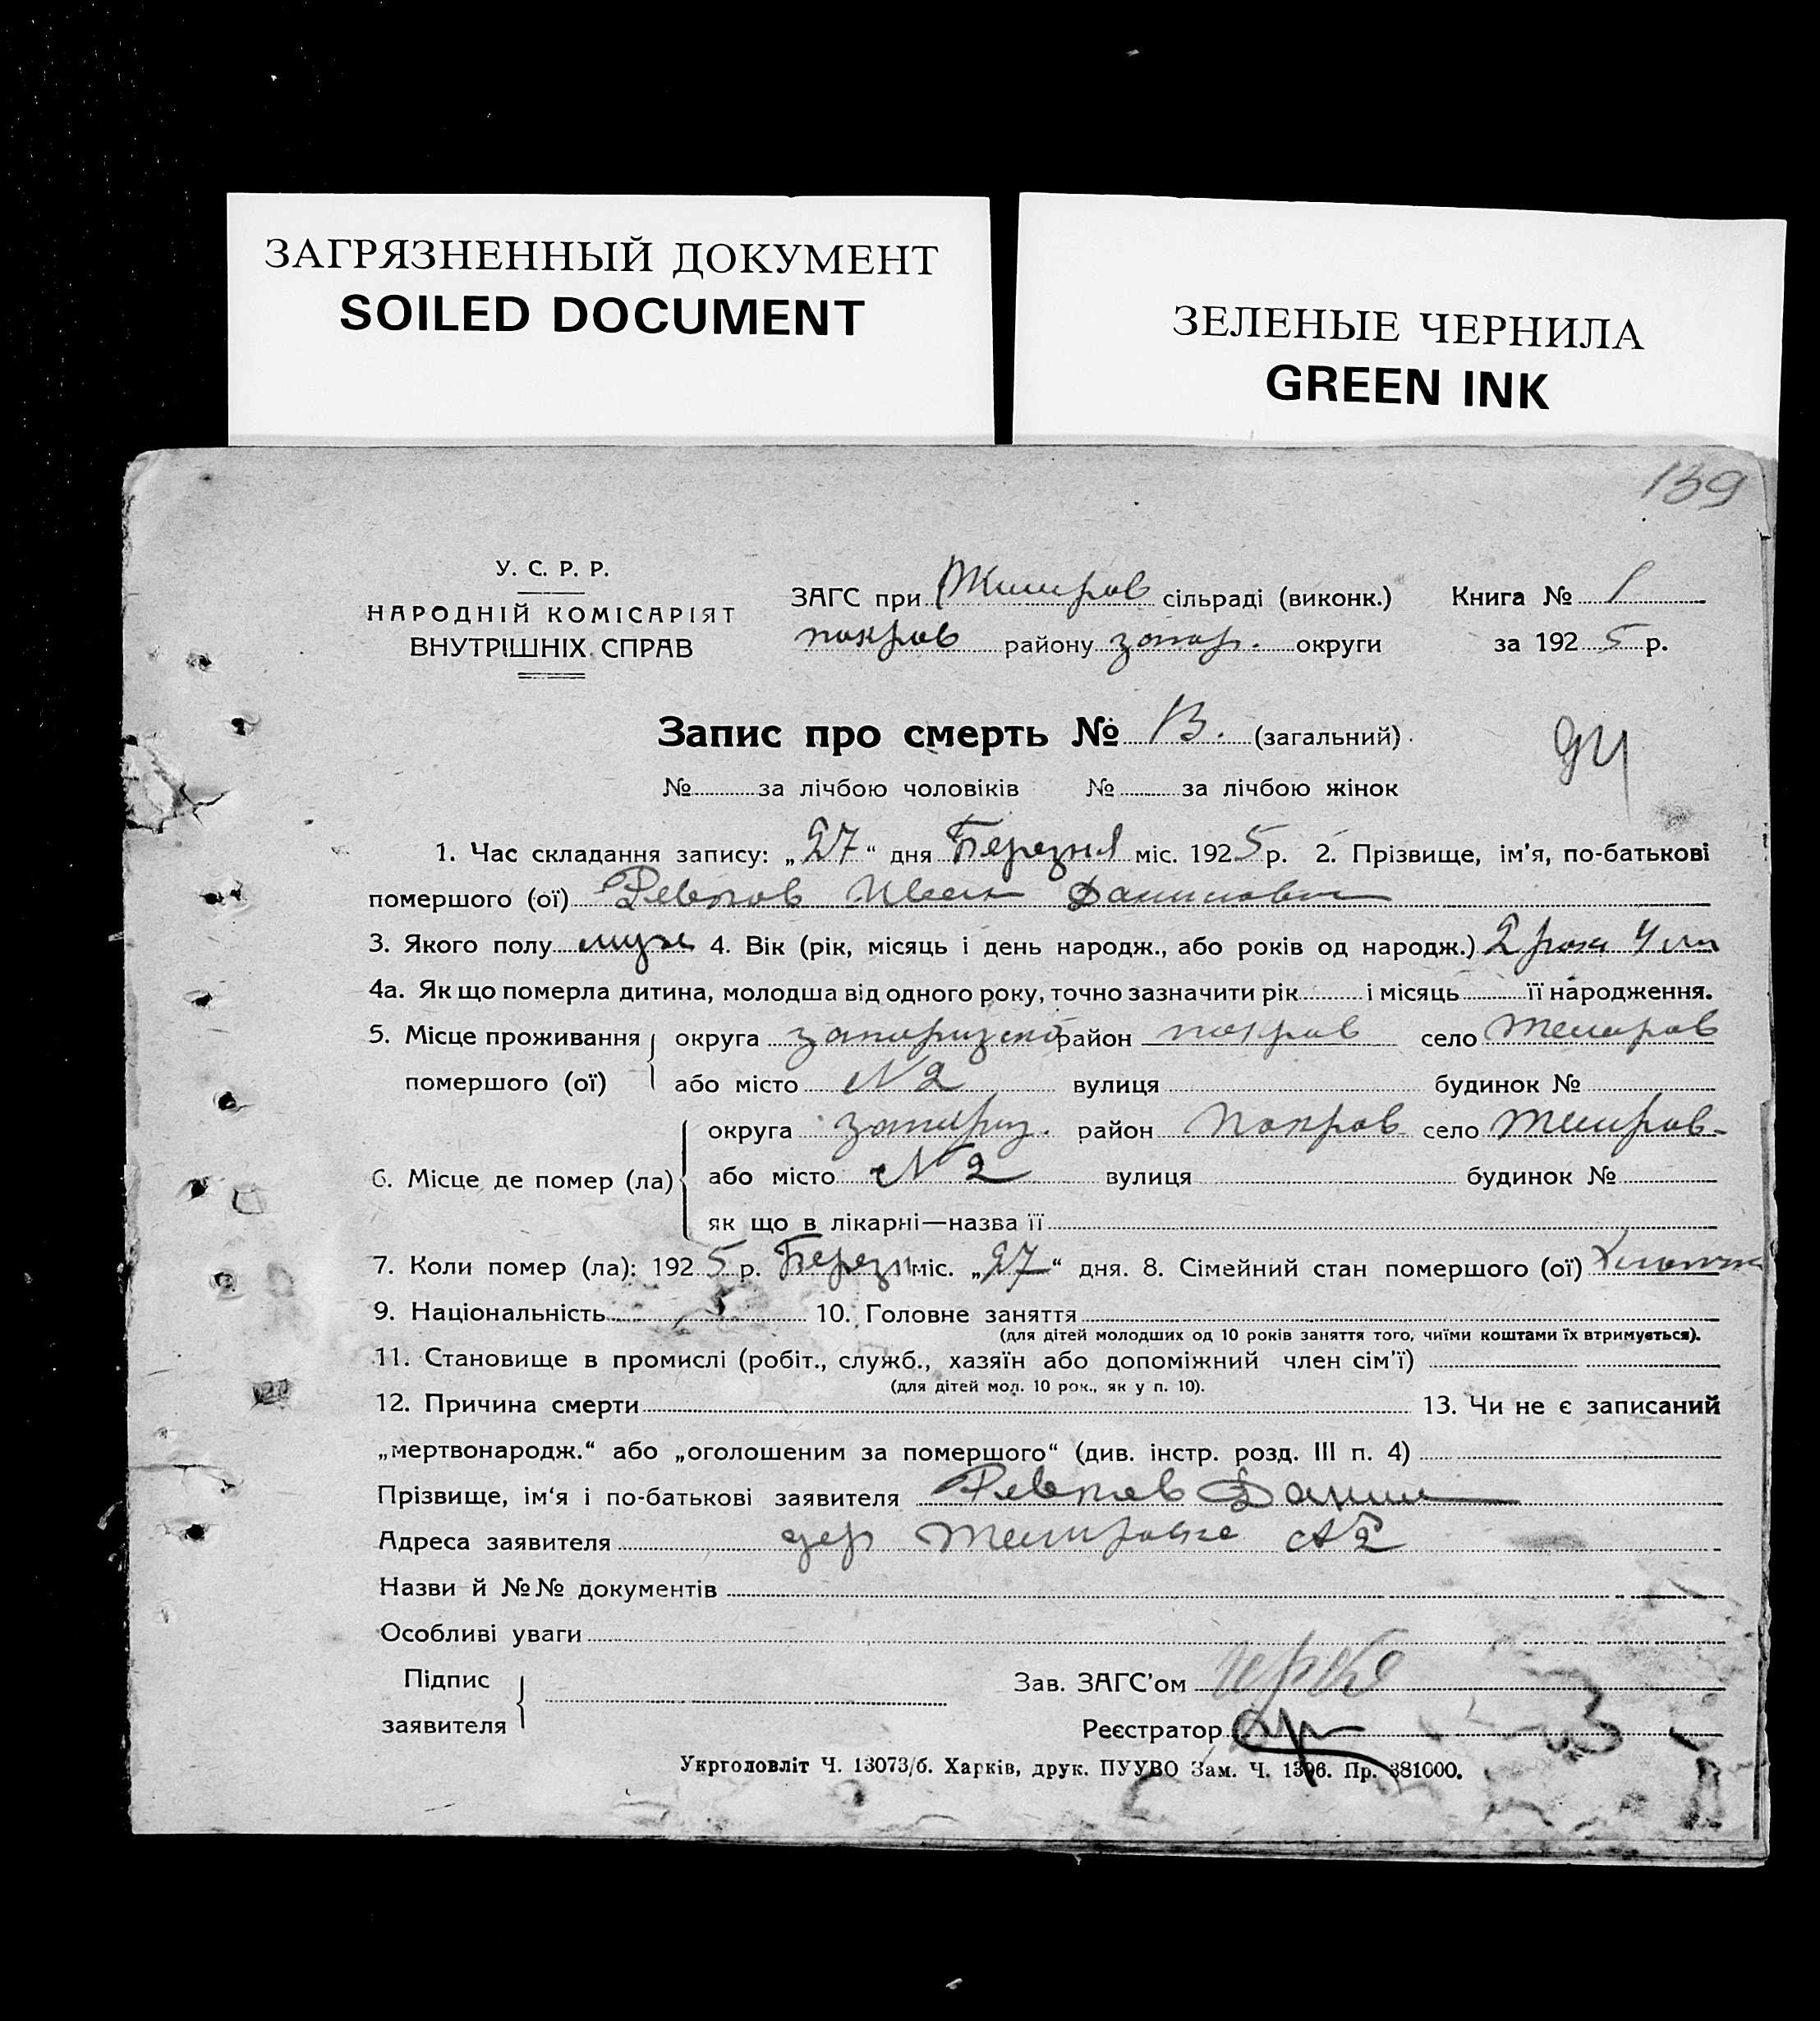 ЗАГРЯЗНЕННЫЙ ДОКУМЕНТ
SOILED DOCUMENT
ЗЕЛЕНЫЕ ЧЕРНИЛА
GREEN INK
139
У. С. Р. Р.
НАРОДНІЙ КОМІСАРІЯТ
ВНУТРІШНІХ СПРАВ
ЗАГС при сільраді (виконк.) Книга № 1
покров району запор. округи за 1925 р.
Запис про смерть № 13. (загальний)
№ за лічбою чоловіків № за лічбою жінок
1. Час складання запису: „27“ дня Березня міс. 1925 р. 2. Прізвище, ім'я, по-батькові
помершого (ої) Иван Данилович
3. Якого полу муж 4. Вік (рік, місяць і день народж., або років од народж.) 2 роки 4 м
4а. Як що померла дитина, молодша від одного року, точно зазначити рік і місяць її народження.
5. Місце проживання помершого (ої) округа район покров село Темиров
або місто №2 вулиця будинок №
6. Місце де помер (ла) округа запориз. район Покров село Темиров-
або місто №2 вулиця будинок №
як що в лікарні—назва її
7. Коли помер (ла): 1925 р. Березн міс. „27“ дня. 8. Сімейний стан помершого (ої)
9. Національність 10. Головне заняття
(для дітей молодших од 10 років заняття того, чиїми коштами їх втримується).
11. Становище в промислі (робіт., служб., хазяїн або допоміжний член сім'ї)
(для дітей мол. 10 рок., як у п. 10).
12. Причина смерти 13. Чи не є записаний
„мертвонародж.“ або „оголошеним за помершого“ (див. інстр. розд. III п. 4)
Прізвище, ім'я і по-батькові заявителя Данил
Адреса заявителя дер Темировка №2
Назви й №№ документів
Особливі уваги
Підпис заявителя Зав. ЗАГС'ом
Реєстратор
Укрголовліт Ч. 13073/б. Харків, друк. ПУУВО Зам. Ч. 1396. Пр. 381000.